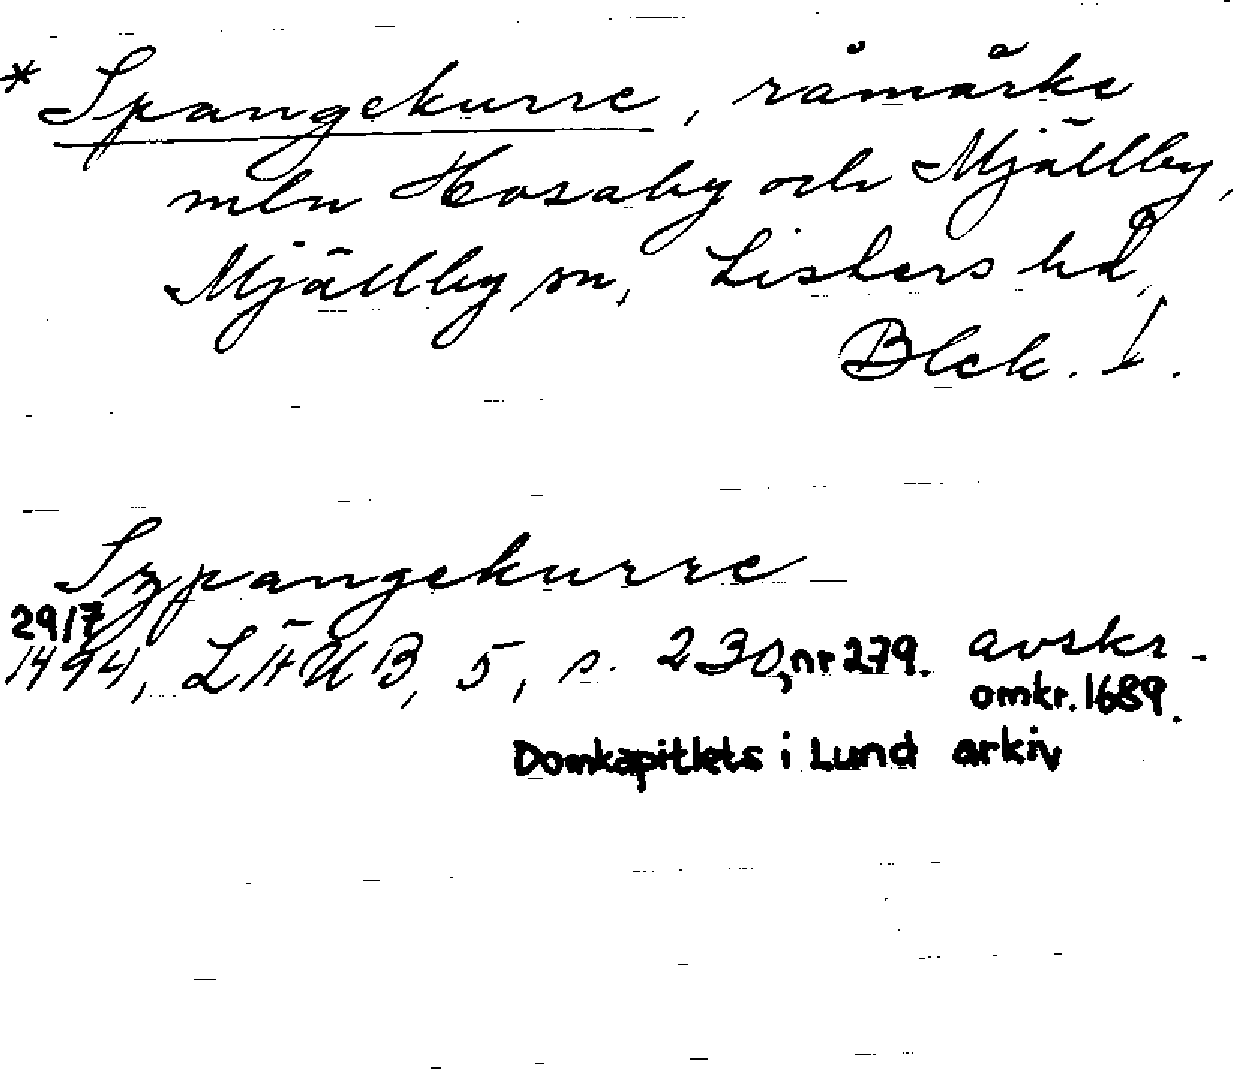 * Spangekurre, råmärke
mln Hosaby och Mjällby,
Mjällby sn, Listers hd,
Blek. L.
Szpangekurre
29/7
1494, LÄUB, 5, s. 230, nr 279. avskr.
omkr. 1689.
Domkapitlets i Lund arkiv